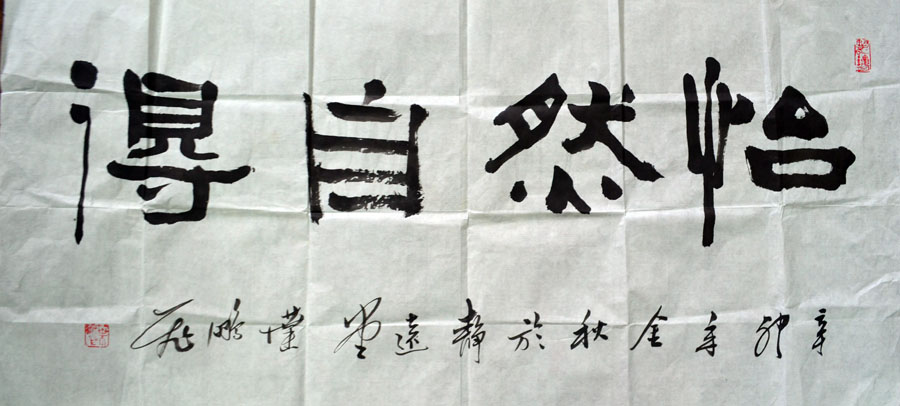 怡然自得
辛卯年金秋於靜遠堂漢鵬